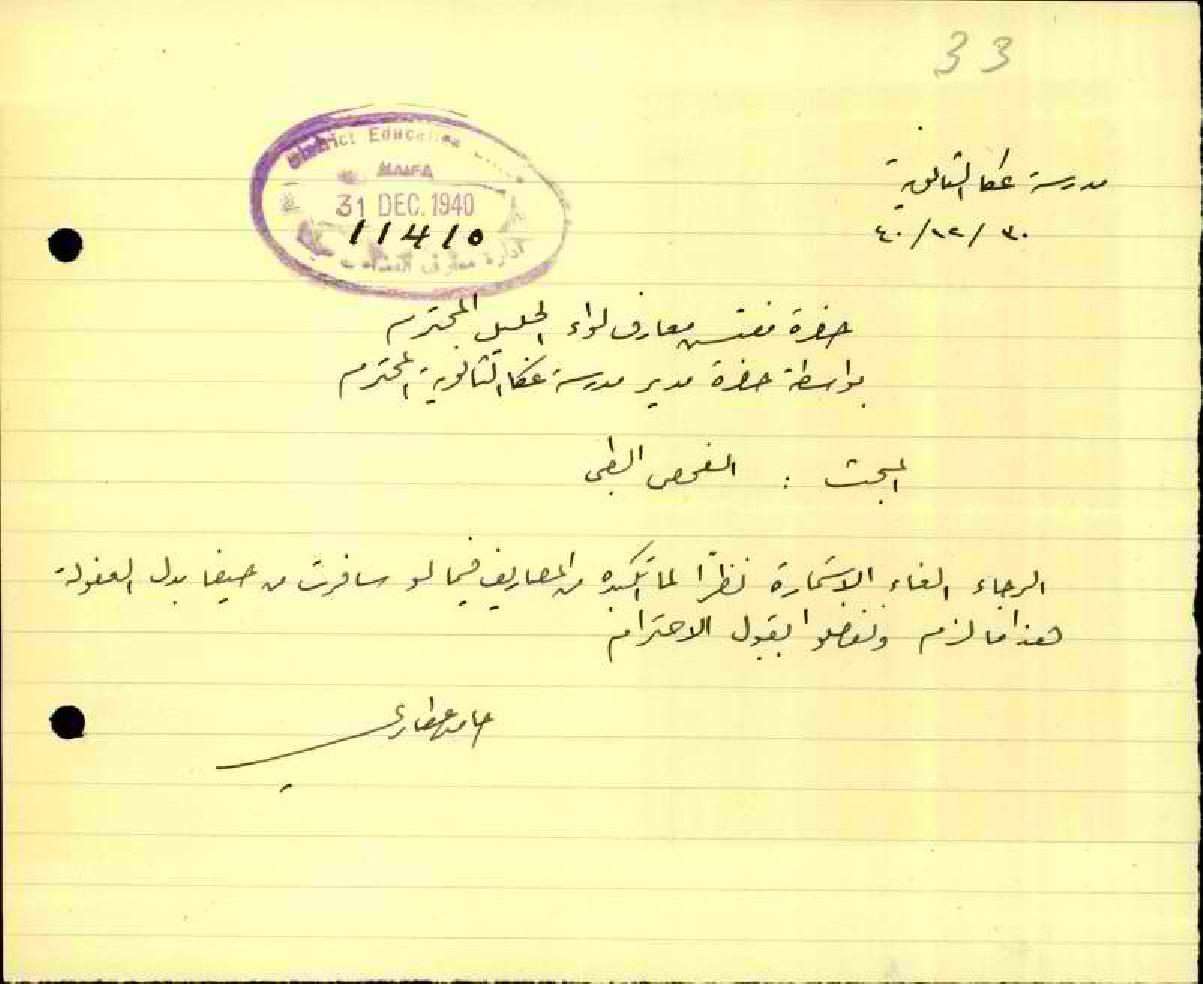 33
مدرسة عكا الثانوية
٣٠/١٢/٤٠
District Education
HAIFA
31 DEC. 1940
11410
ادارة معارف
حضرة مفتش معارف لواء الجليل المحترم
بواسطة حضرة مدير مدرسة عكا الثانوية المحترم
المبحث : الفحص الطبي
الرجاء الغاء الاستمارة نظرًا لما اتكبده من المصاريف فيما لو سافرت من حيفا بدل العفولة
هذا ما لزم وتفضلوا بقبول الاحترام
حامد عطاري